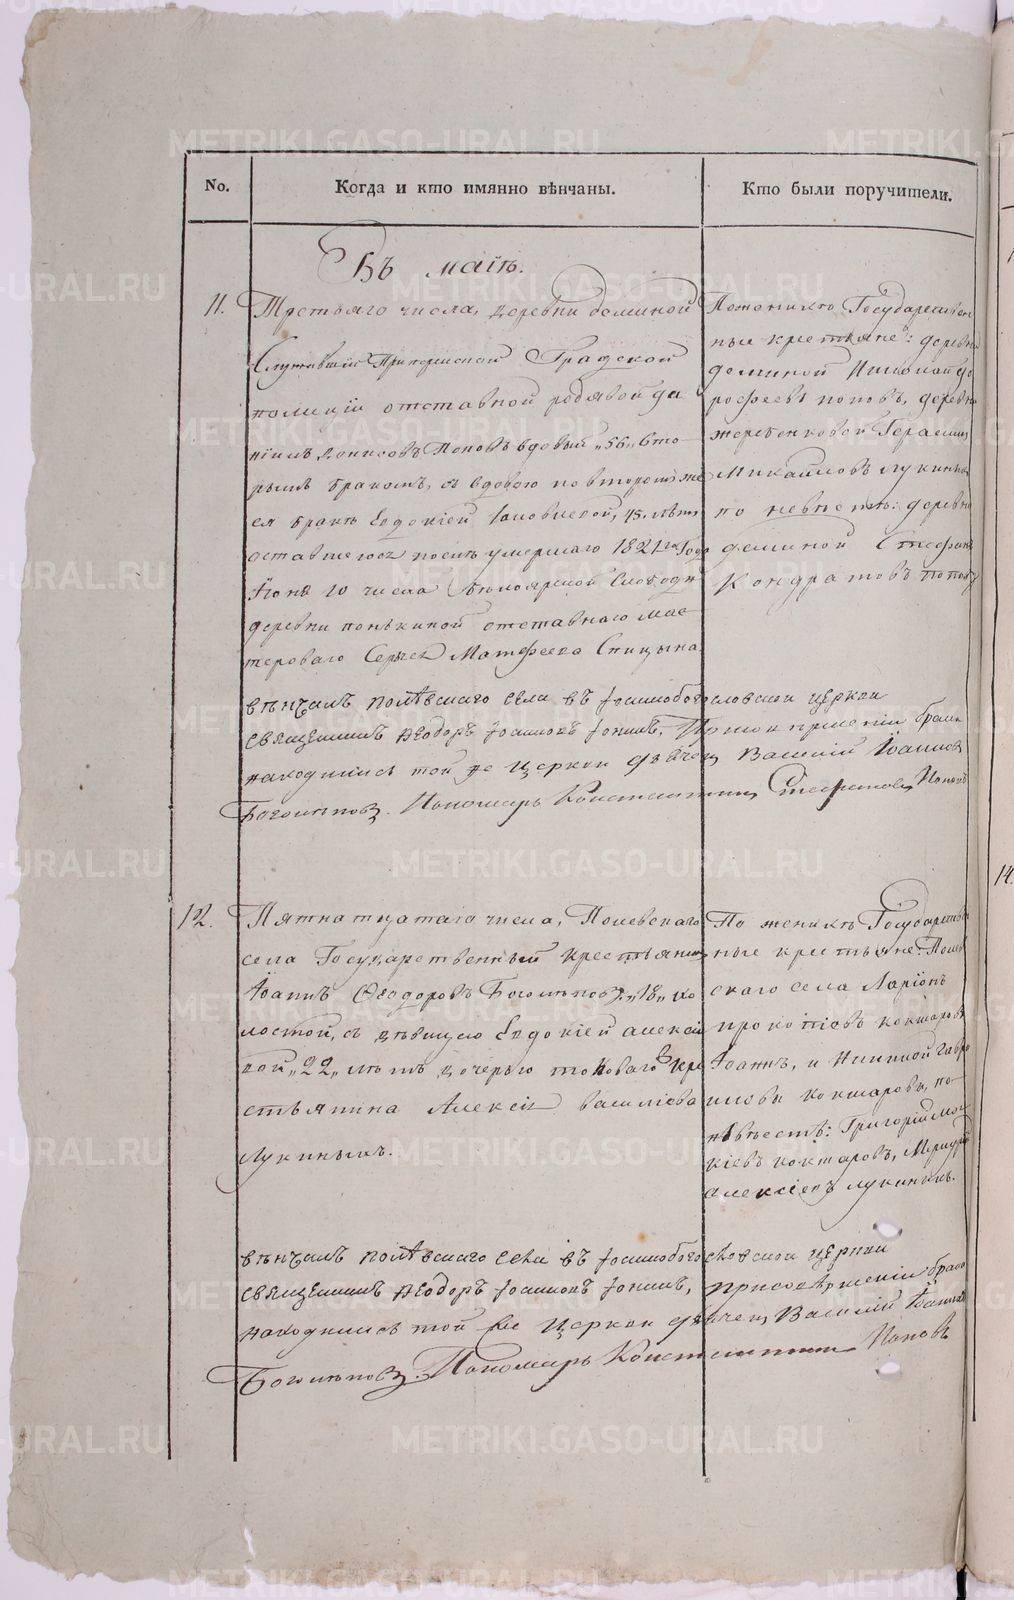 No.
Когда и кто имянно вѣнчаны.
Кто были поручители.
Въ маiѣ.
11.
Третьяго числа, деревни деминой
Служившiй при пермской Градской
полицiи отставной рядовой Да
нiилъ Денисовъ Поповъ вдовый „56„ вто
рымъ бракомъ, съ вдовою по второмъ же
ея бракѣ Евдокiей 45. лѣтъ
оставшеюся послѣ умершаго 1821го Года
10 числа Бѣлоярской Слободы
деревни отставнаго мас
тероваго Сергея Матфеева Спицына
По женихѣ Государствен
ные крестьяне: деревни
деминой Николай До
рофеевъ поповъ, деревни
жеребенковой Герасимъ
Михайловъ лукинъ
по невѣстѣ: деревни
деминой Стефанъ
Кондратовъ поповъ
вѣнчалъ полѣвскаго села въ Iоаннобогословской церкви
священникъ Ѳеодоръ Iоанновъ
находились той же церкви дьячекъ Василiй Iоанновъ
Боголѣповъ. Пономарь Константинъ Стефановъ Поповъ
12.
Пятнатцатаго числа, Полевскаго
села Государственный крестьянинъ
Iоаннъ Ѳеодоровъ Боголѣповъ „18„ хо
лостой, съ дѣвицею Евдокiей алексiе
вой „22„ лѣтъ дочерью таковаго кре
стьянина Алексiя василiева
Лукиныхъ.
По женихѣ Государствен
ные крестьяне: Полев
скаго села Ларiонъ
прокопiевъ кокшаровъ
Iоаннъ, и Николай Гавро
иловы кокшаровы, по
невѣстѣ: Григорiй Мо
кiевъ кокшаровъ,
алексiевъ лукинъ.
вѣнчалъ полѣвскаго села въ Iоаннобогословской церкви
священникъ Ѳеодоръ Iоанновъ при совершенiи брака
находились той же церкви дьячекъ Василiй Iоанновъ
Боголѣповъ. Пономарь Константинъ Поповъ
14.
METRIKI.GASO-URAL.RU